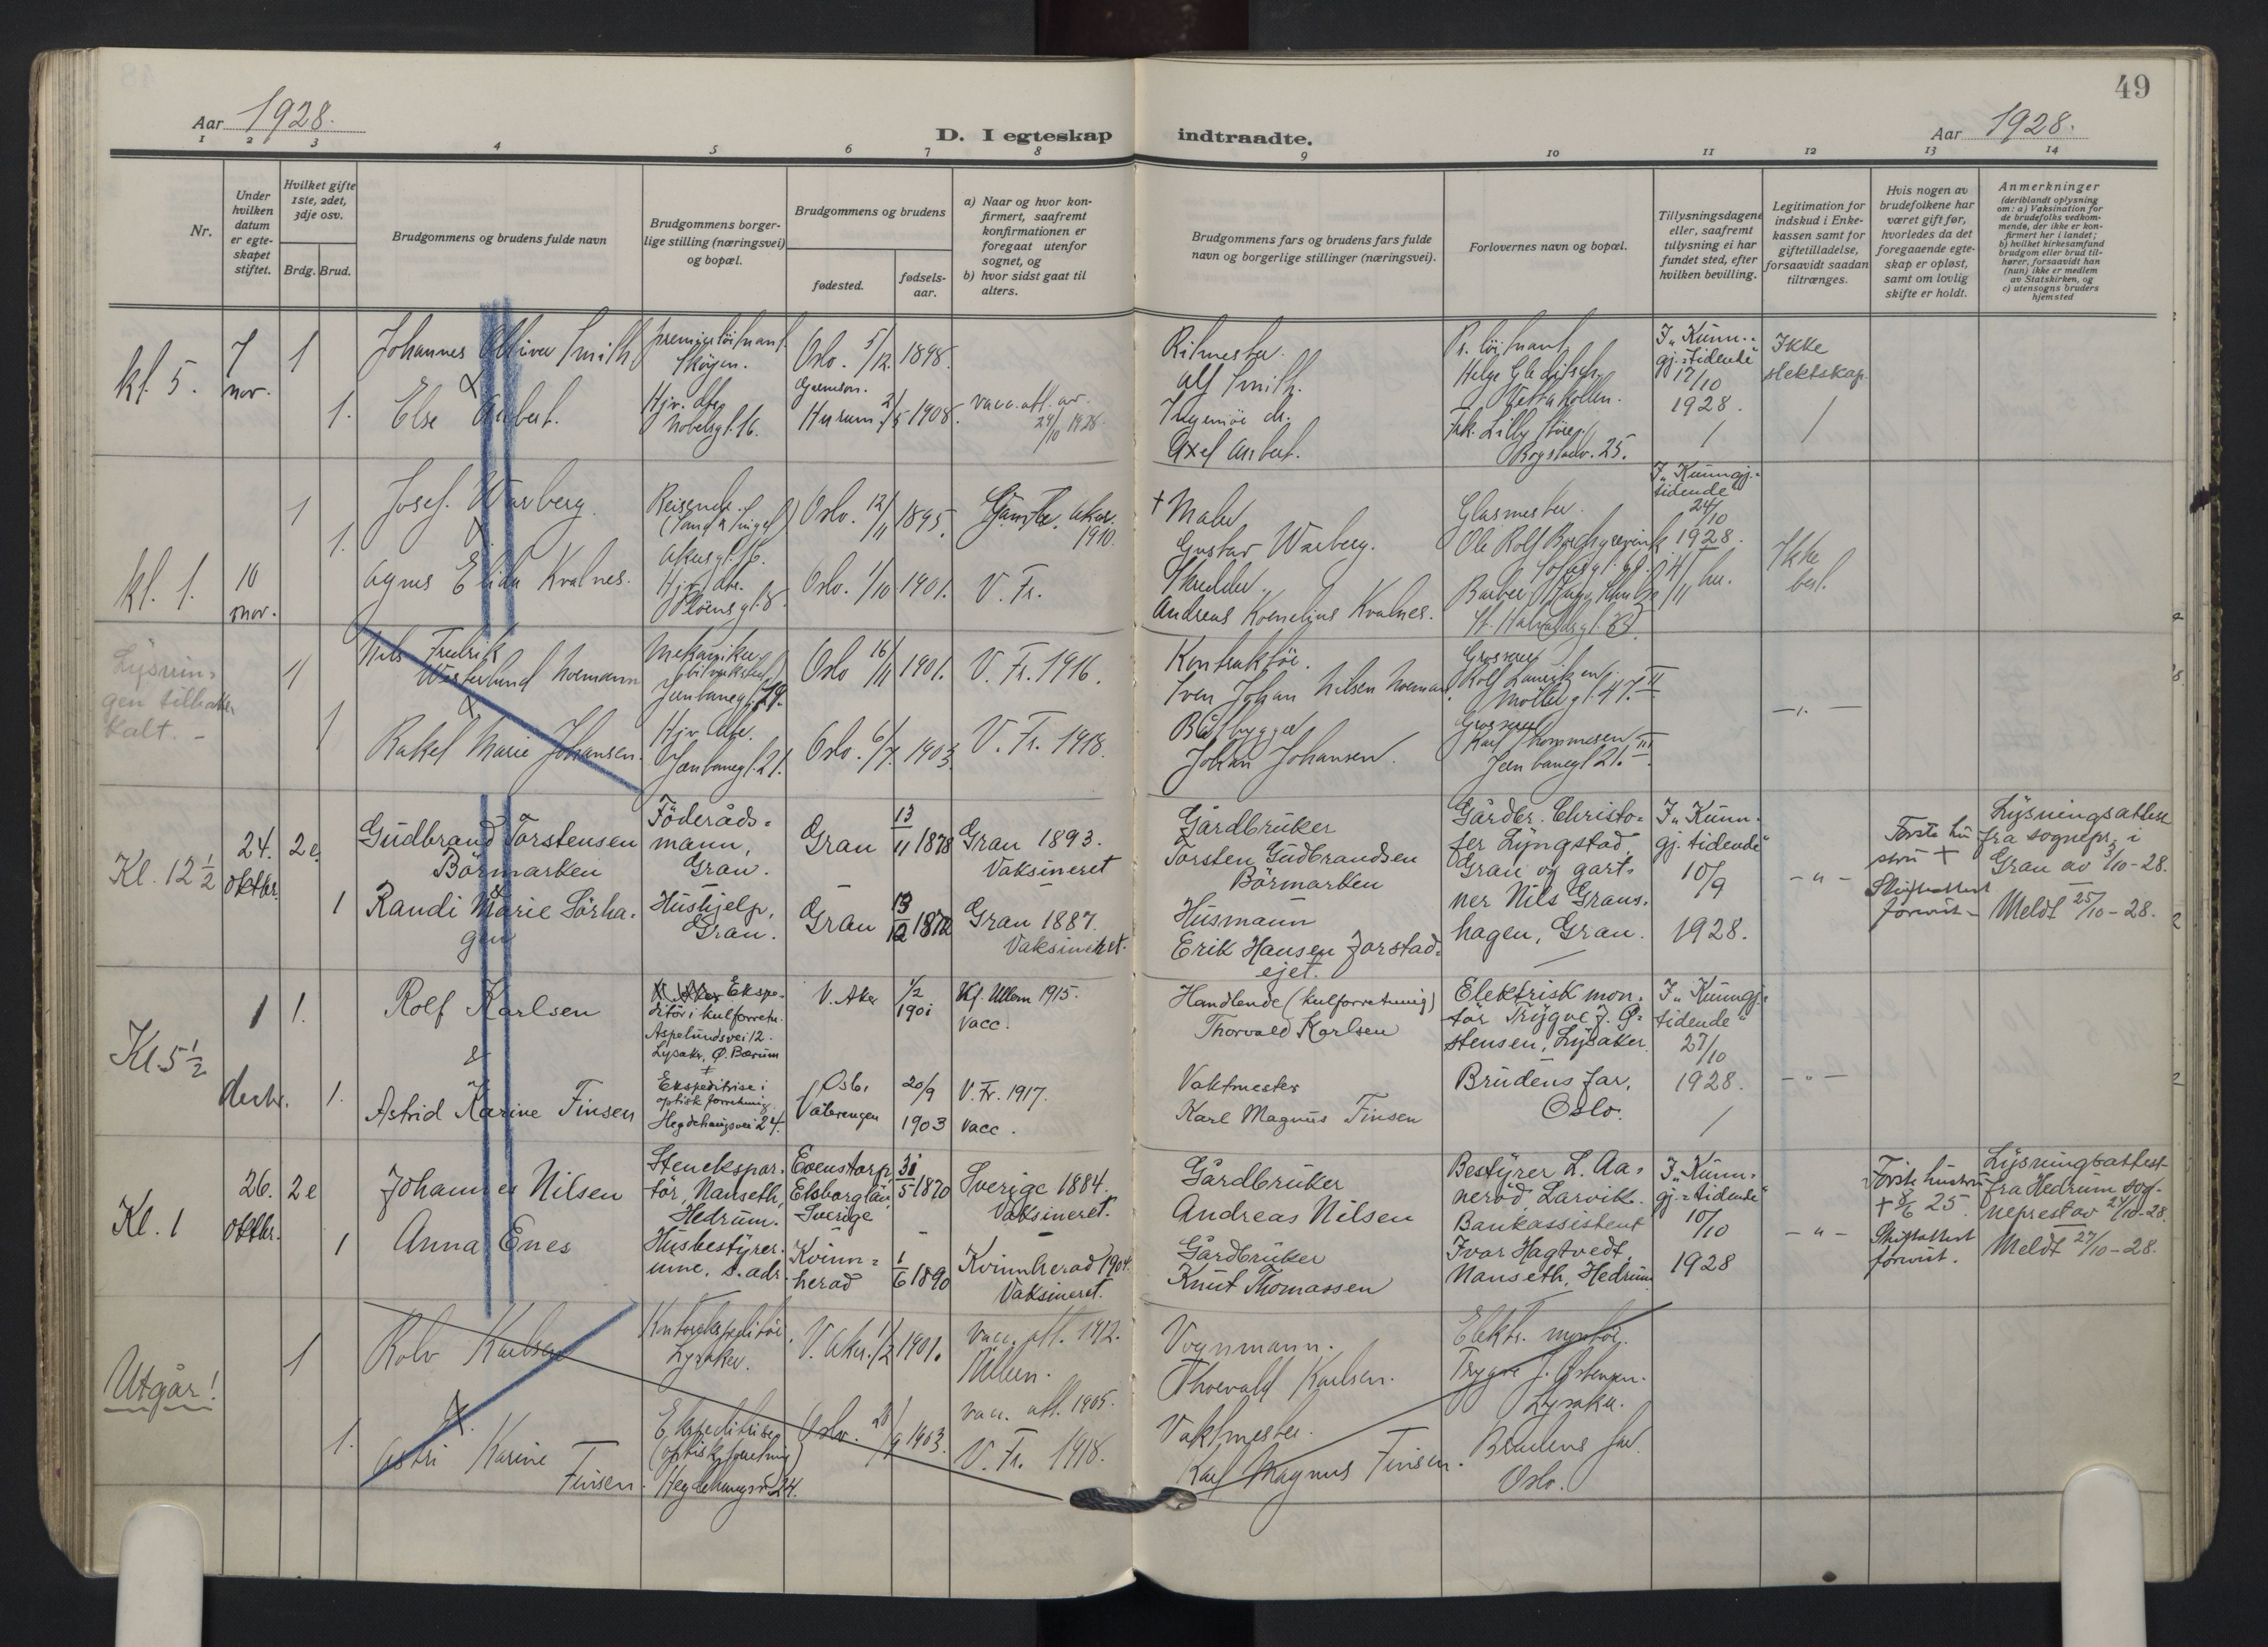 49
Aar 1928.
D. I egteskap indtraadte.
Aar 1928.
1 2 3 4 5 6 7 8 9 10 11 12 13 14
Nr.
Under
hvilken
datum
er egte-
skapet
stiftet.
Hvilket gifte
1ste, 2det,
3dje osv.
Brdg. Brud.
Brudgommens og brudens fulde navn
Brudgommens borger-
lige stilling (næringsvei)
og bopæl.
Brudgommens og brudens
fødested.
fødsels-
aar.
a) Naar og hvor kon-
firmert, saafremt
konfirmationen er
foregaat utenfor
sognet, og
b) hvor sidst gaat til
alters.
Brudgommens fars og brudens fars fulde
navn og borgerlige stillinger (næringsvei).
Forlovernes navn og bopæl.
Tillysningsdagene
eller, saafremt
tillysning ei har
fundet sted, efter
hvilken bevilling.
Legitimation for
indskud i Enke-
kassen samt for
giftetilladelse,
forsaavidt saadan
tiltrænges.
Hvis nogen av
brudefolkene har
været gift før,
hvorledes da det
foregaaende egte-
skap er opløst,
samt om lovlig
skifte er holdt.
Anmerkninger
(deriblandt oplysning
om: a) Vaksination for
de brudefolks vedkom-
mende, der ikke er kon-
firmert her i landet;
b) hvilket kirkesamfund
brudgom eller brud til-
hører, forsaavidt han
(hun) ikke er medlem
av Statskirken, og
c) utensogns bruders
hjemsted
kl. 5.
7
nov.
1
1.
Johannes Smith
&
Else
premierløitnant
Skøyen.
Hjv. dtr.
Nobelsgt. 16.
Oslo. 5/12 1898.
Hurum. 2/5 1908.
vacc. att. av
24/10 1928
Ritmester
Alf Smith.
Ingeniør
Axel
Pr. løitnant
Helge
Frk. Lilly
25.
I „Kunn-
gj.-tidende"
17/10
1928.
Ikke
slektskap.
kl. 1.
10
nov.
1
1.
Josef Warberg.
&
Agnes Elida Kvalnes.
Reisende.
Akersgt. 16.
Hjv. dtr.
Pløensgt. 8.
Oslo. 12/11 1895.
Oslo. 1/10 1901.
Gamle Aker.
1910.
V. Fr.
† Maler
Gustav Warberg.
Andreas Kornelius Kvalnes.
Glasmester
Ole Rolf
Barber
I „Kunngj.-
tidende"
24/10
1928.
Ikke
besl.
Lysnin-
gen tilbake
kalt. -
1
1
Nils Fredrik
Westerlund Noemann
&
Rakel Marie Johansen.
Mekaniker
Jernbanegt. 19.
Hjv. dtr.
Jernbanegt. 21.
Oslo 16/11 1901.
Oslo. 6/7. 1903.
V. Fr. 1916.
V. Fr. 1918.
Kontraktør.
Sven Johan Nilsen Noemann.
Båtbygger
Johan Johansen.
Grosserer
Rolf
Møllergt. 47. II
Grosserer
Karl Thommesen
Jernbanegt 21. III
Kl. 12 1/2
24.
oktbr.
2 e.
1
Gudbrand Torstensen
Börmarken
&
Randi Marie Sörha-
gen
Föderåds-
mann,
Gran.
Hushjelp,
Gran.
Gran 13/11 1878
Gran 13/12 1872
Gran 1893.
Vaksineret
Gran 1887.
Vaksineret.
Gårdbruker
Torsten Gudbrandsen
Börmarken
Husmann
Erik Hansen Jorstad-
ejet.
Gårdbr. Christo-
fer Lyngstad,
Gran og gart-
ner Nils Grans-
hagen, Gran.
I „Kunn-
gj. tidende"
10/9
1928.
- " -
Første hu-
stru †
Skifteattest
forevist -
Lysningsattest
fra sognepr. i
Gran av 3/10-28.
Meldt 25/10-28.
Kl. 5 1/2
1
desbr.
1.
1.
Rolf Karlsen
&
Astrid Karine Finsen
Ekspe-
ditör i kulforretn.
Aspelundsvei 12.
Lysaker, Ö. Bærum
Ekspeditrise i
optisk forretning
Hegdehaugsvei 24.
V. Aker 1/2 1901
Oslo,
Vålerengen
20/9
1903
Kf. Ullern 1915.
vacc.
V. Fr. 1917.
vacc.
Handlende (kulforretning)
Thorvald Karlsen
Vaktmester
Karl Magnus Finsen
Elektrisk mon-
tør Trygve J. Ø-
stensen, Lysaker.
Brudens far,
Oslo.
I „Kunngj.-
tidende"
27/10
1928.
- " -
Kl. 1
26.
oktbr.
2 e
1
Johannes Nilsen
Anna Enes
Stenekspor-
tör, Nanseth,
Hedrum.
Husbestyrer-
inne, s. adr.
Evenstorp,
Elsborglän
Sverige
31/5 1870
Kvinn-
herad
1/6 1890
Sverige 1884.
Vaksineret.
Kvinnherad 1904.
Vaksineret.
Gårdbruker
Andreas Nilsen
Gårdbruker
Knut Thomassen
Bestyrer L. Aa-
neröd, Larvik.
Bankassistent
Ivar Hagtvedt,
Nanseth, Hedrum
I „Kunn-
gj.-tidende"
10/10
1928
- " -
Første hustru
† 8/6 25.
Skifteattest
forevist.
Lysningsattest
fra Hedrum sog-
neprest av 24/10-28.
Meldt 27/10-28.
Utgår!
1
1.
Rolv Karlsen
&
Astri Karine
Finsen.
Kontorekspeditør
Lysaker.
Ekspeditrise
(optisk forretning)
Hegdehaugsv. 24.
V. Aker. 1/2 1901.
Oslo. 20/9 1903.
vacc. att. 1912.
Ullern.
vacc. att. 1905.
V. Fr. 1918.
Vognmann.
Thorvald Karlsen.
Vaktmester.
Karl Magnus Finsen.
Elektr. montør.
Trygve J. Østensen.
Lysaker.
Brudens far.
Oslo.